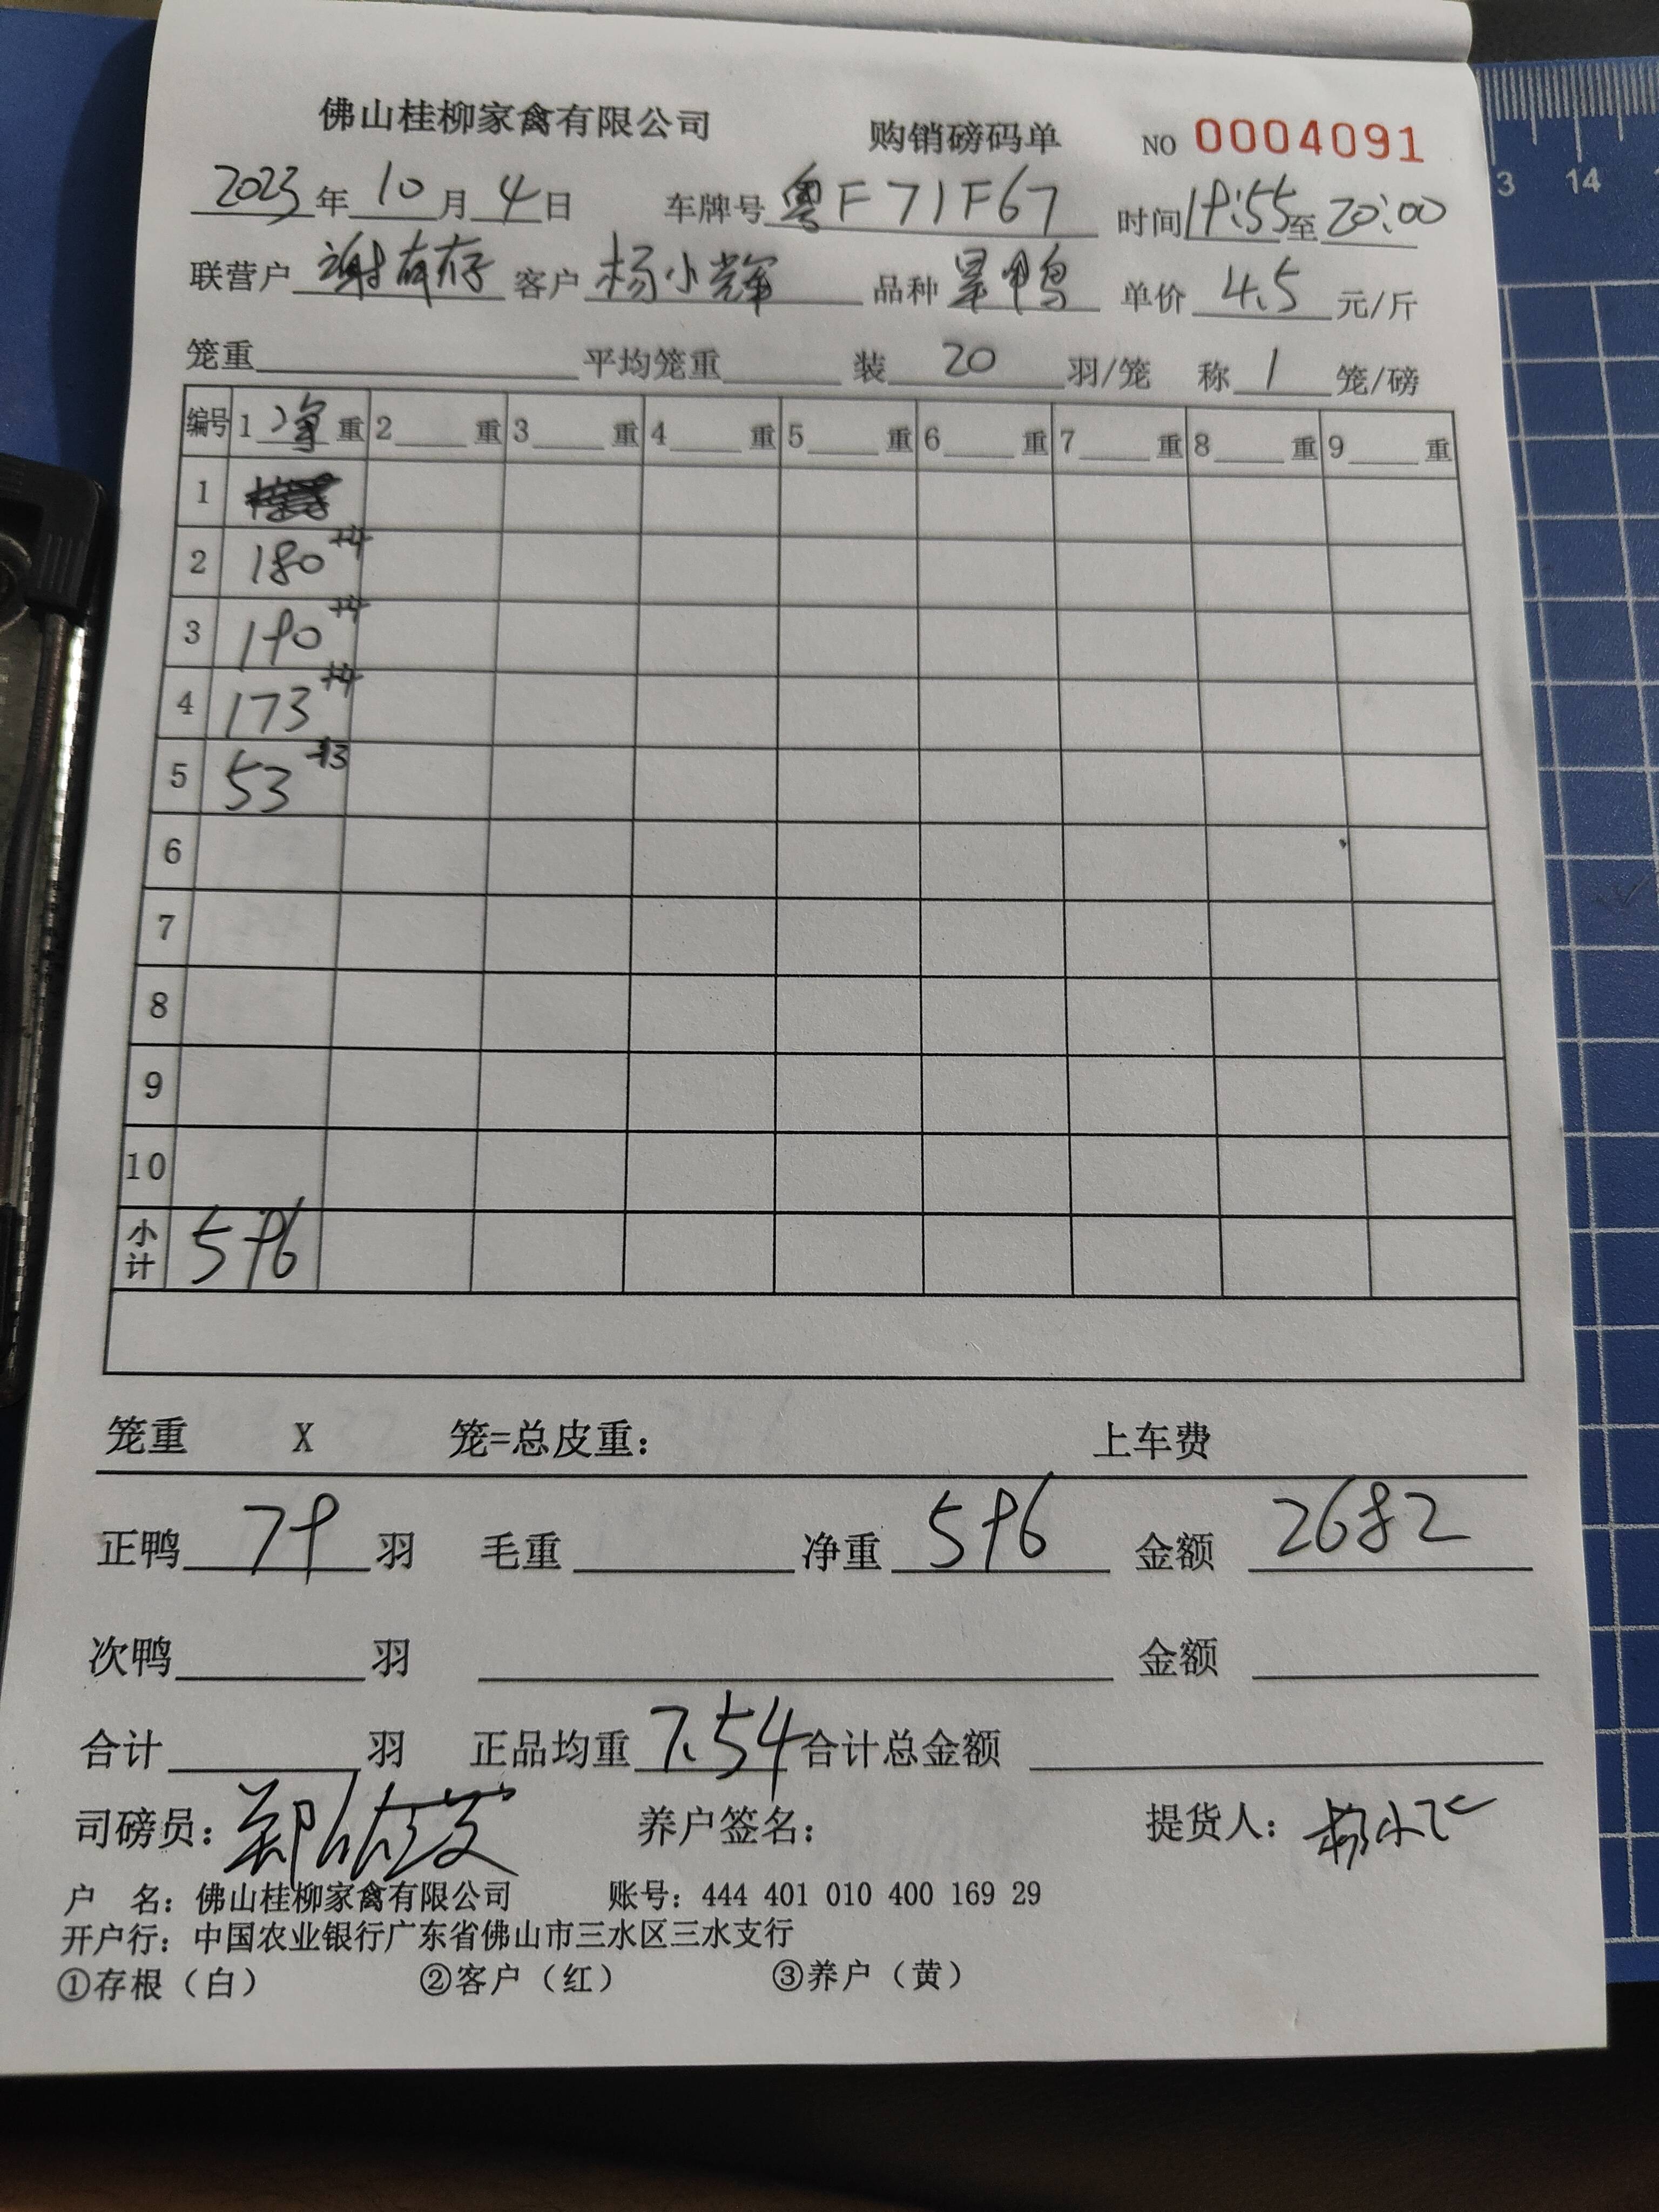 佛山桂柳家禽有限公司 购销磅码单 NO 0004091
2023年10月4日 车牌号粤F71F67 时间19:55至20:00
联营户 谢有存 客户 杨小辉 品种 旱鸭 单价 4.5 元/斤
笼重 平均笼重 装 20 羽/笼 称 1 笼/磅
编号 1 净 重 2 重 3 重 4 重 5 重 6 重 7 重 8 重 9 重
1
2 180 +4
3 190 +4
4 173 +4
5 53 +3
6
7
8
9
10
小计 596
笼重 X 笼=总皮重: 上车费
正鸭 79 羽 毛重 净重 596 金额 2682
次鸭 羽 金额
合计 羽 正品均重 7.54 合计总金额
司磅员: 养户签名: 提货人:
户 名: 佛山桂柳家禽有限公司 账号: 444 401 010 400 169 29
开户行: 中国农业银行广东省佛山市三水区三水支行
①存根(白) ②客户(红) ③养户(黄)
13 14